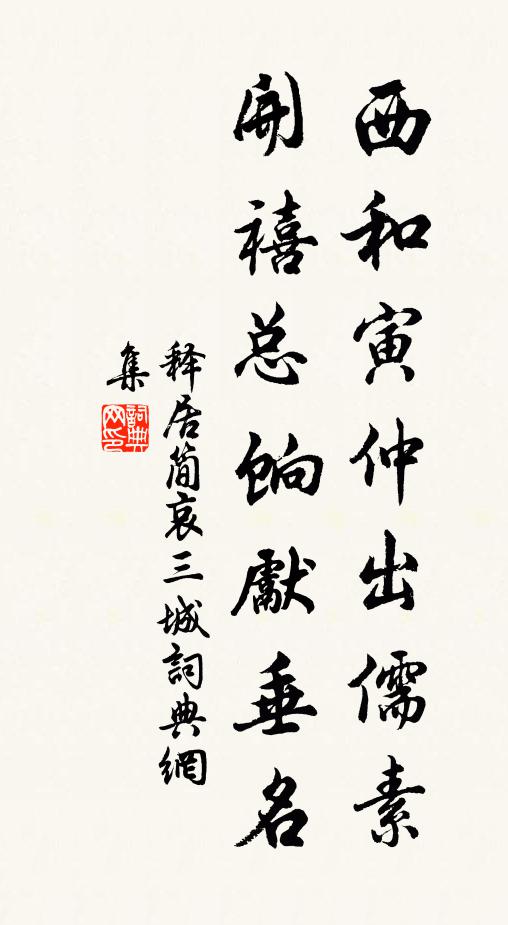 西和寅仲出儒素
開禧总餉獻垂名
释居简哀三城詞典網
集
詞典
网印